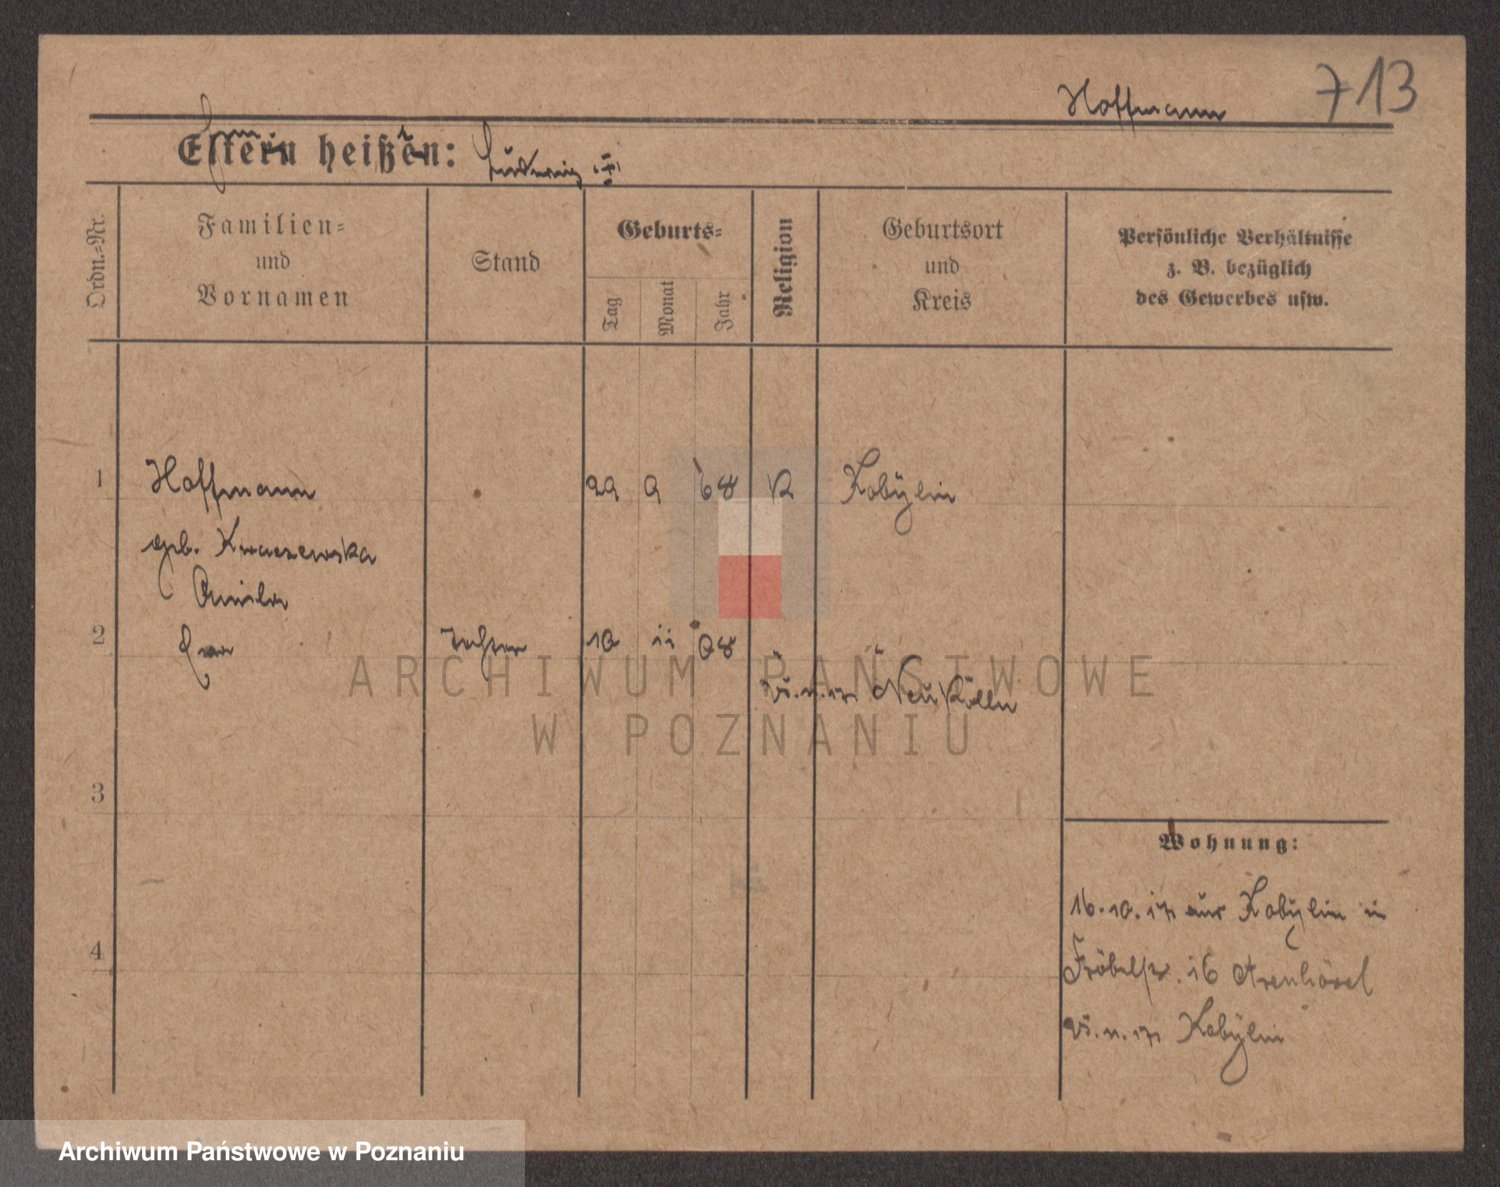 Hoffmann 713
Eltern heißen: Ludwig
Ordn.=Nr.
Familien=
und
Vornamen
Stand
Geburts=
Tag
Monat
Jahr
Religion
Geburtsort
und
Kreis
Persönliche Verhältnisse
z. B. bezüglich
des Gewerbes usw.
1 Hoffmann 29 9 68 K Kobylin
geb. Kwaczewska
2 Tochter 08
Neu Kölln
3
Wohnung:
16.10.17 aus Kobylin in
4
Fröbelstr. 16
Kobylin
ARCHIWUM PAŃSTWOWE
W POZNANIU
Archiwum Państwowe w Poznaniu